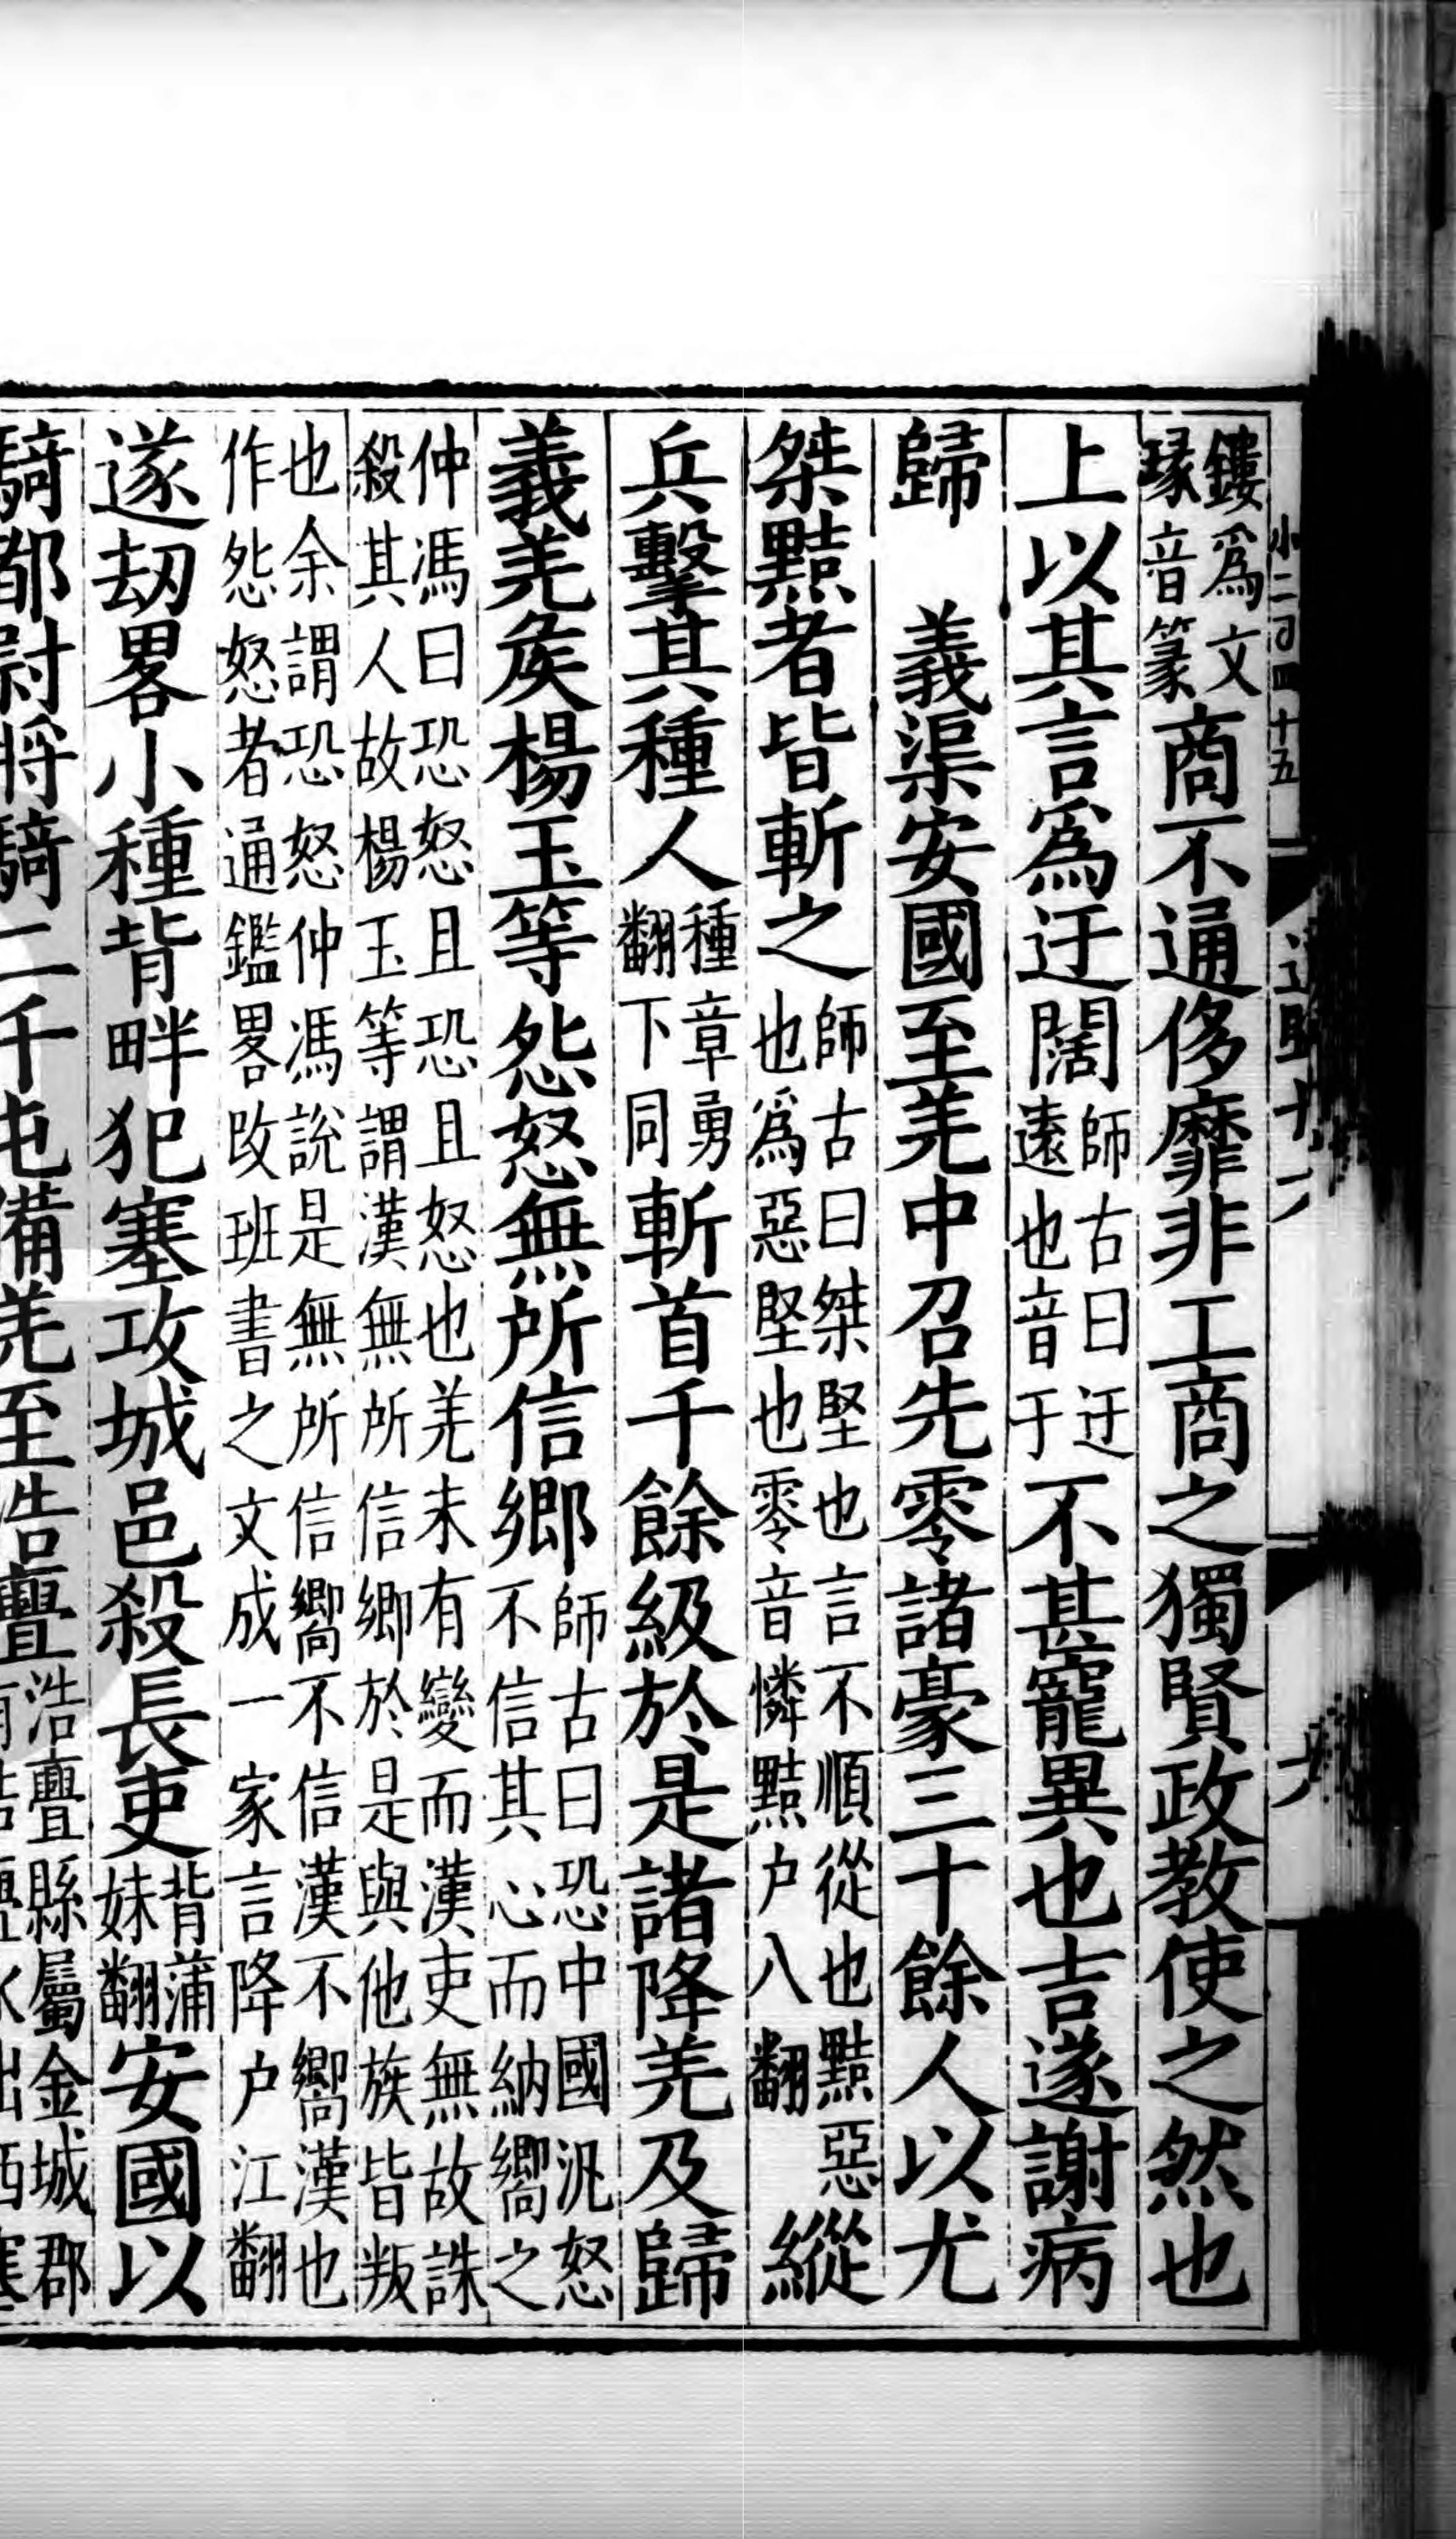 鏤爲文瑑音篆商不通侈靡非工商之獨賢政教使之然也
上以其言爲迂闊師古曰迂遠也音于不甚寵異也吉遂謝病
歸　義渠安國至羌中召先零諸豪三十餘人以尤
桀黠者皆斬之師古曰桀堅也言不順從也黠惡也爲惡堅也零音憐黠户八翻縱
兵擊其種人種章勇翻下同斬首千餘級於是諸降羌及歸
義羌矦楊玉等怨怒無所信鄉師古曰恐中國汎怒不信其心而納嚮之
仲馮曰恐怒且恐且怒也羌未有變而漢吏無故誅殺其人故楊玉等謂漢無所信鄉於是與他族皆叛
也余謂恐怒仲馮說是無所信嚮不信漢不嚮漢也作怨怒者通鑑畧改班書之文成一家言降户江翻
遂劫畧小種背畔犯塞攻城邑殺長吏背蒲妹翻安國以
騎都尉將騎二千屯備羌至浩亹浩亹縣屬金城郡